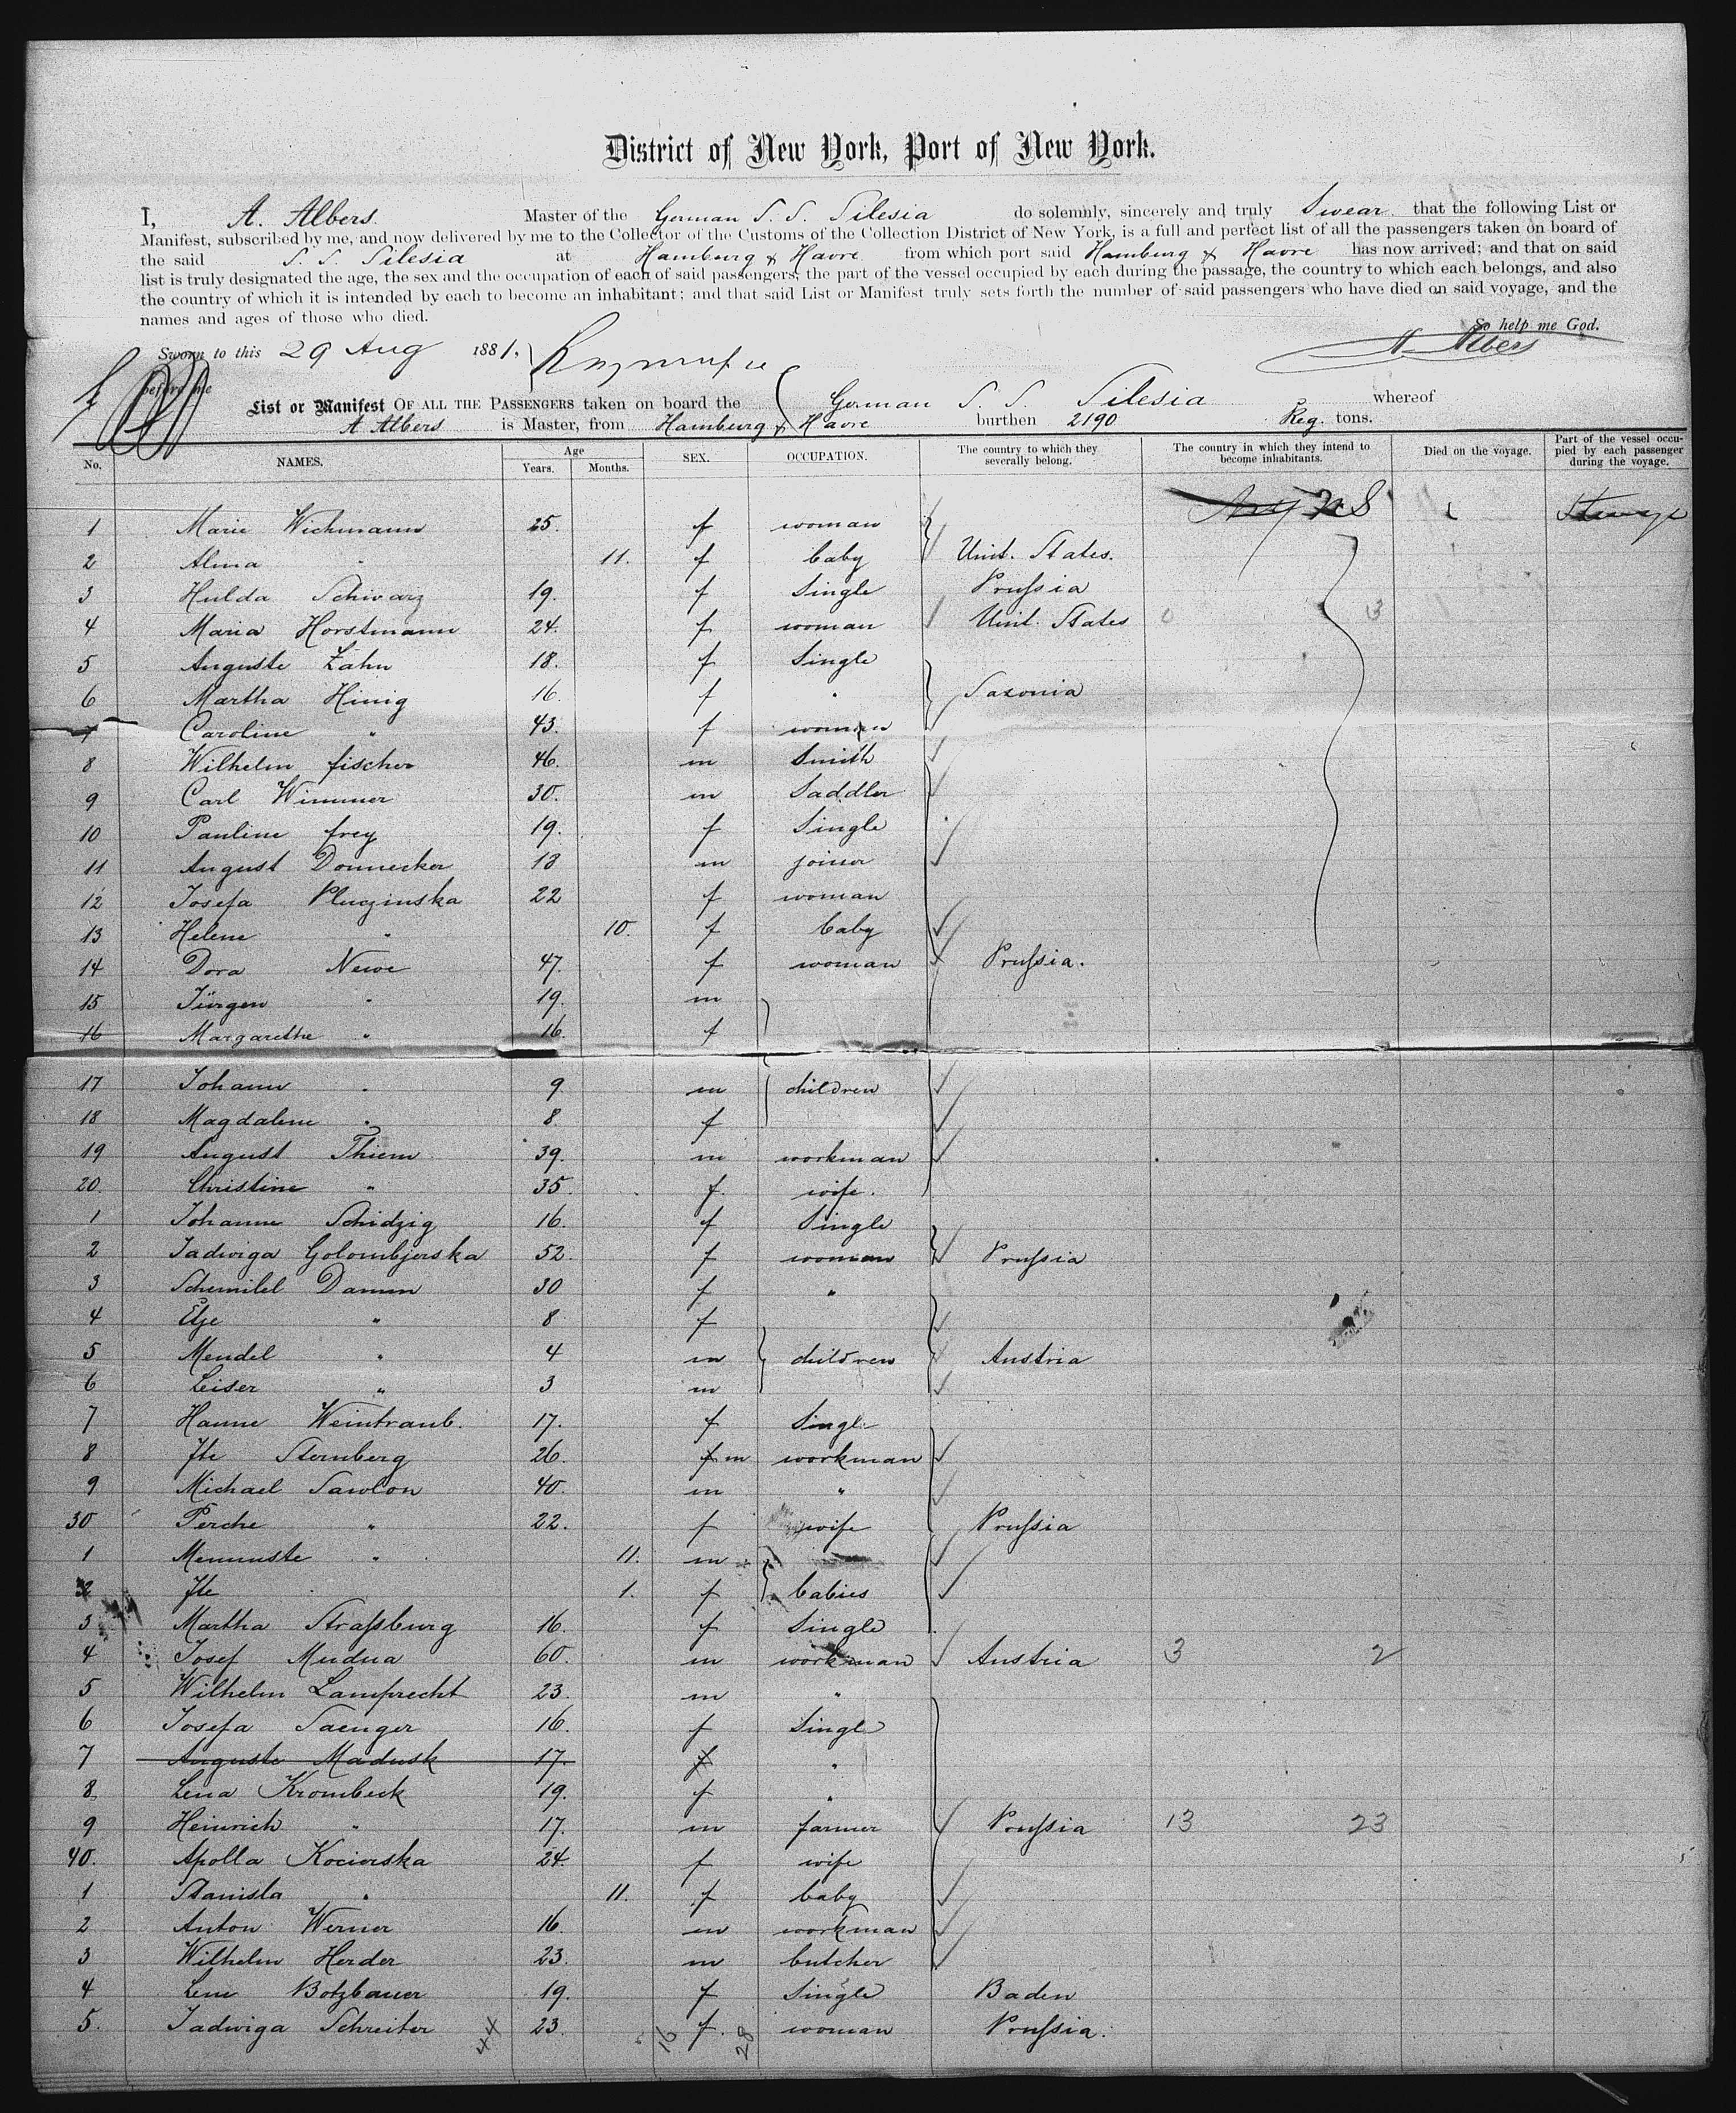 District of New York, Port of New York.
I, A. Albers. Master of the German S. S. Silesia do solemnly, sincerely and truly Swear that the following List or
Manifest, subscribed by me, and now delivered by me to the Collector of the Customs of the Collection District of New York, is a full and perfect list of all the passengers taken on board of
the said S. S. Silesia at Hamburg & Havre from which port said Hamburg & Havre has now arrived; and that on said
list is truly designated the age, the sex and the occupation of each of said passengers, the part of the vessel occupied by each during the passage, the country to which each belongs, and also
the country of which it is intended by each to become an inhabitant; and that said List or Manifest truly sets forth the number of said passengers who have died on said voyage, and the
names and ages of those who died.
So help me God.
Sworn to this 29 Aug 1881, A Albers
before me
List or Manifest OF ALL THE PASSENGERS taken on board the German S. S. Silesia whereof
A Albers is Master, from Hamburg & Havre burthen 2190 Reg. tons.
No. NAMES. Age Years. Months. SEX. OCCUPATION. The country to which they severally belong. The country in which they intend to become inhabitants. Died on the voyage. Part of the vessel occupied by each passenger during the voyage.
1 Marie Wichmann 25. f woman
2 Alma " 11. f baby Unit. States.
3 Hulda Schwarz 19. f Single Prußia
4 Maria Horstmann 24. f woman Unit. States 0 3
5 Auguste Zahn 18. f Single
6 Martha Hinig 16. f " Saxonia
7 Caroline " 43. f woman
8 Wilhelm fischer 46. m Smith
9 Carl Wimmer 30. m Saddler
10 Pauline frey 19. f Single
11 August Donnecker 18 m joiner
12 Josefa Pluczinska 22 f woman
13 Helene " 10. f baby
14 Dora Newe 47. f woman Prußia.
15 Jürgen " 19. m
16 Margarethe " 16. f
17 Johann " 9 m children
18 Magdalene " 8. f
19 August Thiem 39. m workman
20. Christine " 35. f. wife.
1 Johanne Schidzig 16. f Single
2 Jadwiga Golombjewska 52. f woman Prußia
3 Schemilel Damm 30 f "
4 Elje " 8 f
5 Mendel " 4 m children Austria
6 Leiser " 3 m
7 Hanne Weintraub. 17. f Single
8 Ite Sternberg 26. f m workman
9 Michael Sawlon 40. m "
30 Perche " 22. f wife Prußia
1 Memmste " 11. m
2 Ite 1. f babies
3 Martha Straßburg 16. f Single
4 Josef Mudna 60. m workman Austria 3 2
5 Wilhelm Lamprecht 23. m "
6 Josefa Saenger 16. f Single
7 Auguste Madusk 17. f "
8 Lena Krombeck 19. f "
9 Heinrich " 17. m farmer Prußia 13 23
40. Apolla Kocierska 24. f wife
1 Stanisla " 11. f baby
2 Anton Werner 16. m workman
3 Wilhelm Herder 23. m butcher
4 Lene Botzbauer 19. f Single Baden
5. Jadwiga Schreiter 23. f. woman Prußia.
44 16 28